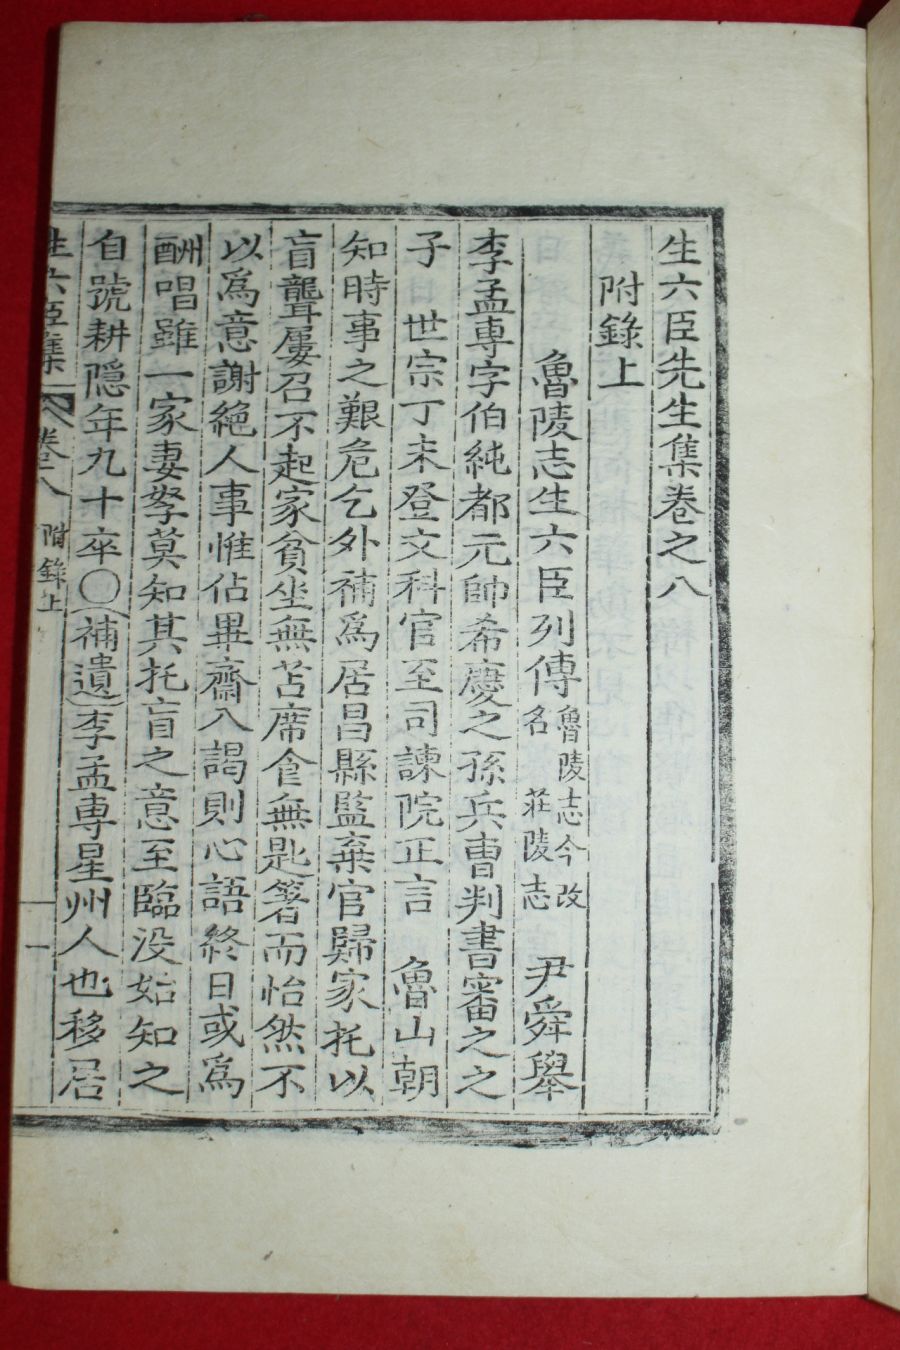 生六臣先生集卷之八
附錄上
魯陵志生六臣列傳 魯陵志今改名莊陵志 尹舜擧
李孟專字伯純都元帥希慶之孫兵曹判書審之之
子 世宗丁未登文科官至司諫院正言 魯山朝
知時事之艱危乞外補爲居昌縣監棄官歸家托以
盲聾屢召不起家貧坐無苫席食無匙箸而怡然不
以爲意謝絶人事惟佔畢齋入謁則心語終日或爲
酬唱雖一家妻孥莫知其托盲之意至臨没始知之
自號耕隱年九十卒〇(補遺)李孟專星州人也移居
生六臣集 卷之八 附錄上 一